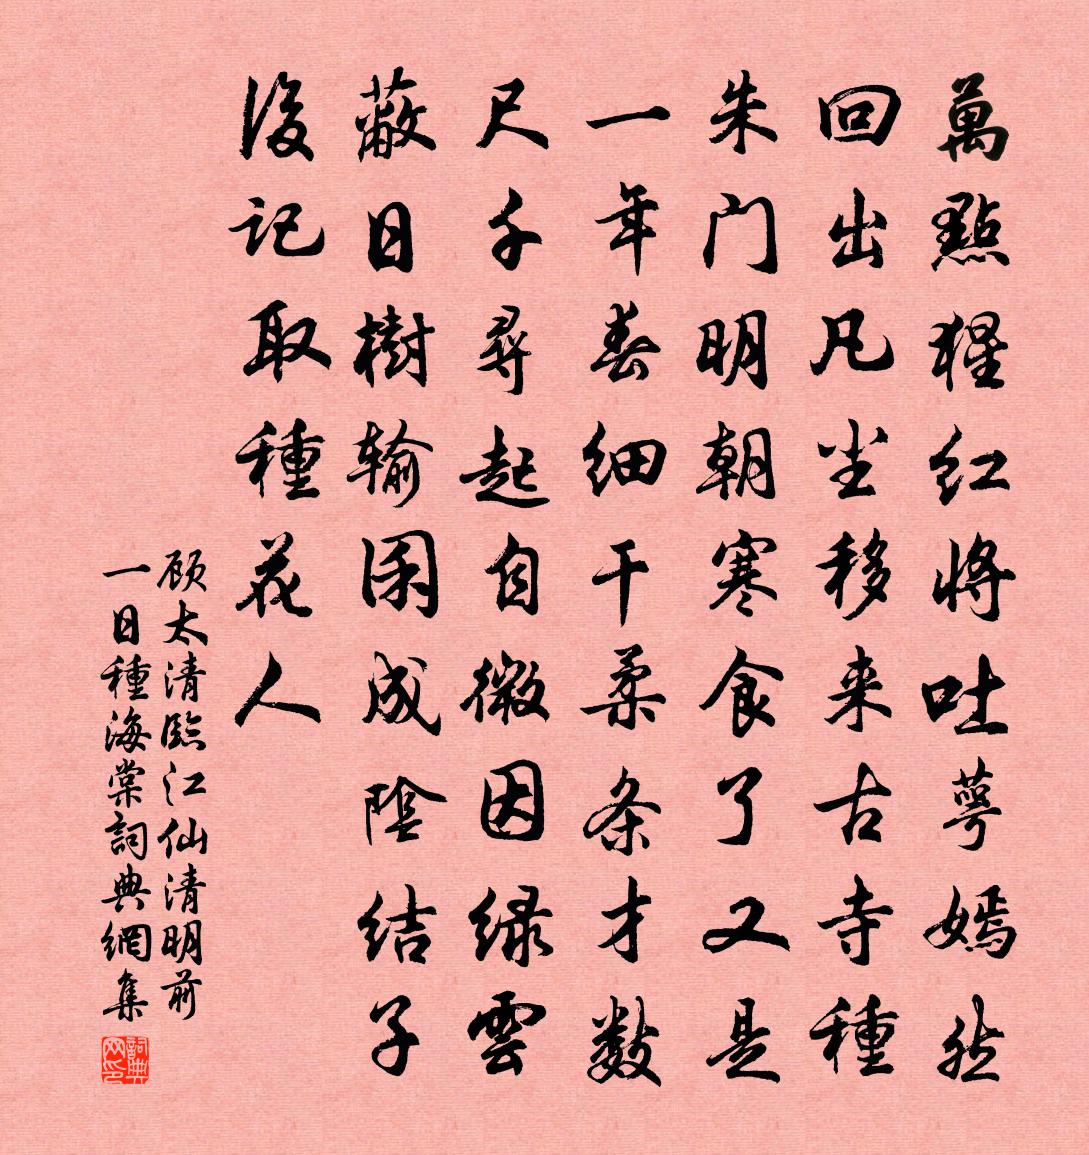 萬點猩红將吐萼嫣然
回出凡尘移来古寺種
朱门明朝寒食了又是
一年春细干柔条才数
尺千尋起自微因绿雲
蔽日樹输囷成陰结子
後记取種花人
顾太清臨江仙清明前
一日種海棠詞典網集
詞典网印